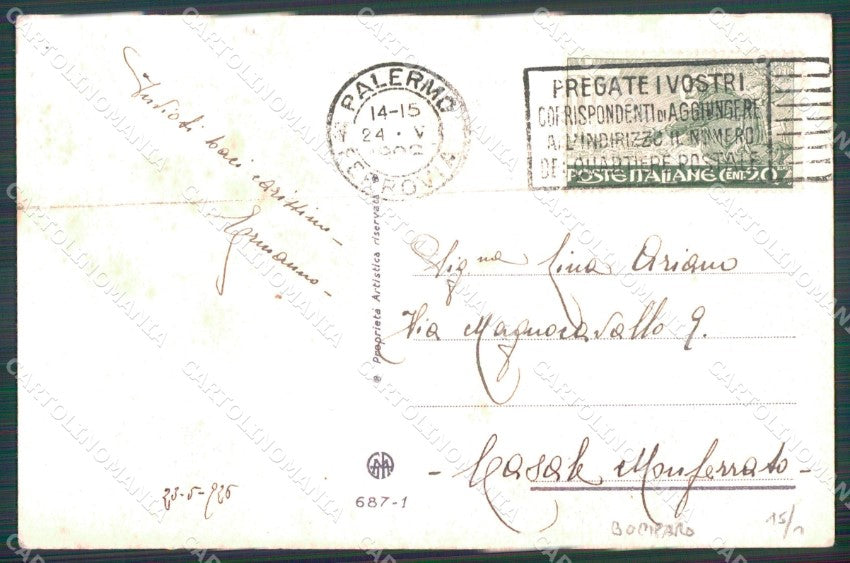 Infiniti baci carissimi -
Hermanno -
23-5-926
PALERMO
14-15
24 · V
FERROVIA
PREGATE I VOSTRI
CORRISPONDENTI DI AGGIUNGERE
ALL'INDIRIZZO IL NUMERO
DEL QUARTIERE POSTALE
POSTE ITALIANE CENT. 20
Sigᶰᵃ Lina Ariano
Via Magnocavallo 9.
- Casale Monferrato -
® Proprietà Artistica riservata
687-1
BOMPARD
15/1
CARTOLINOMANIA